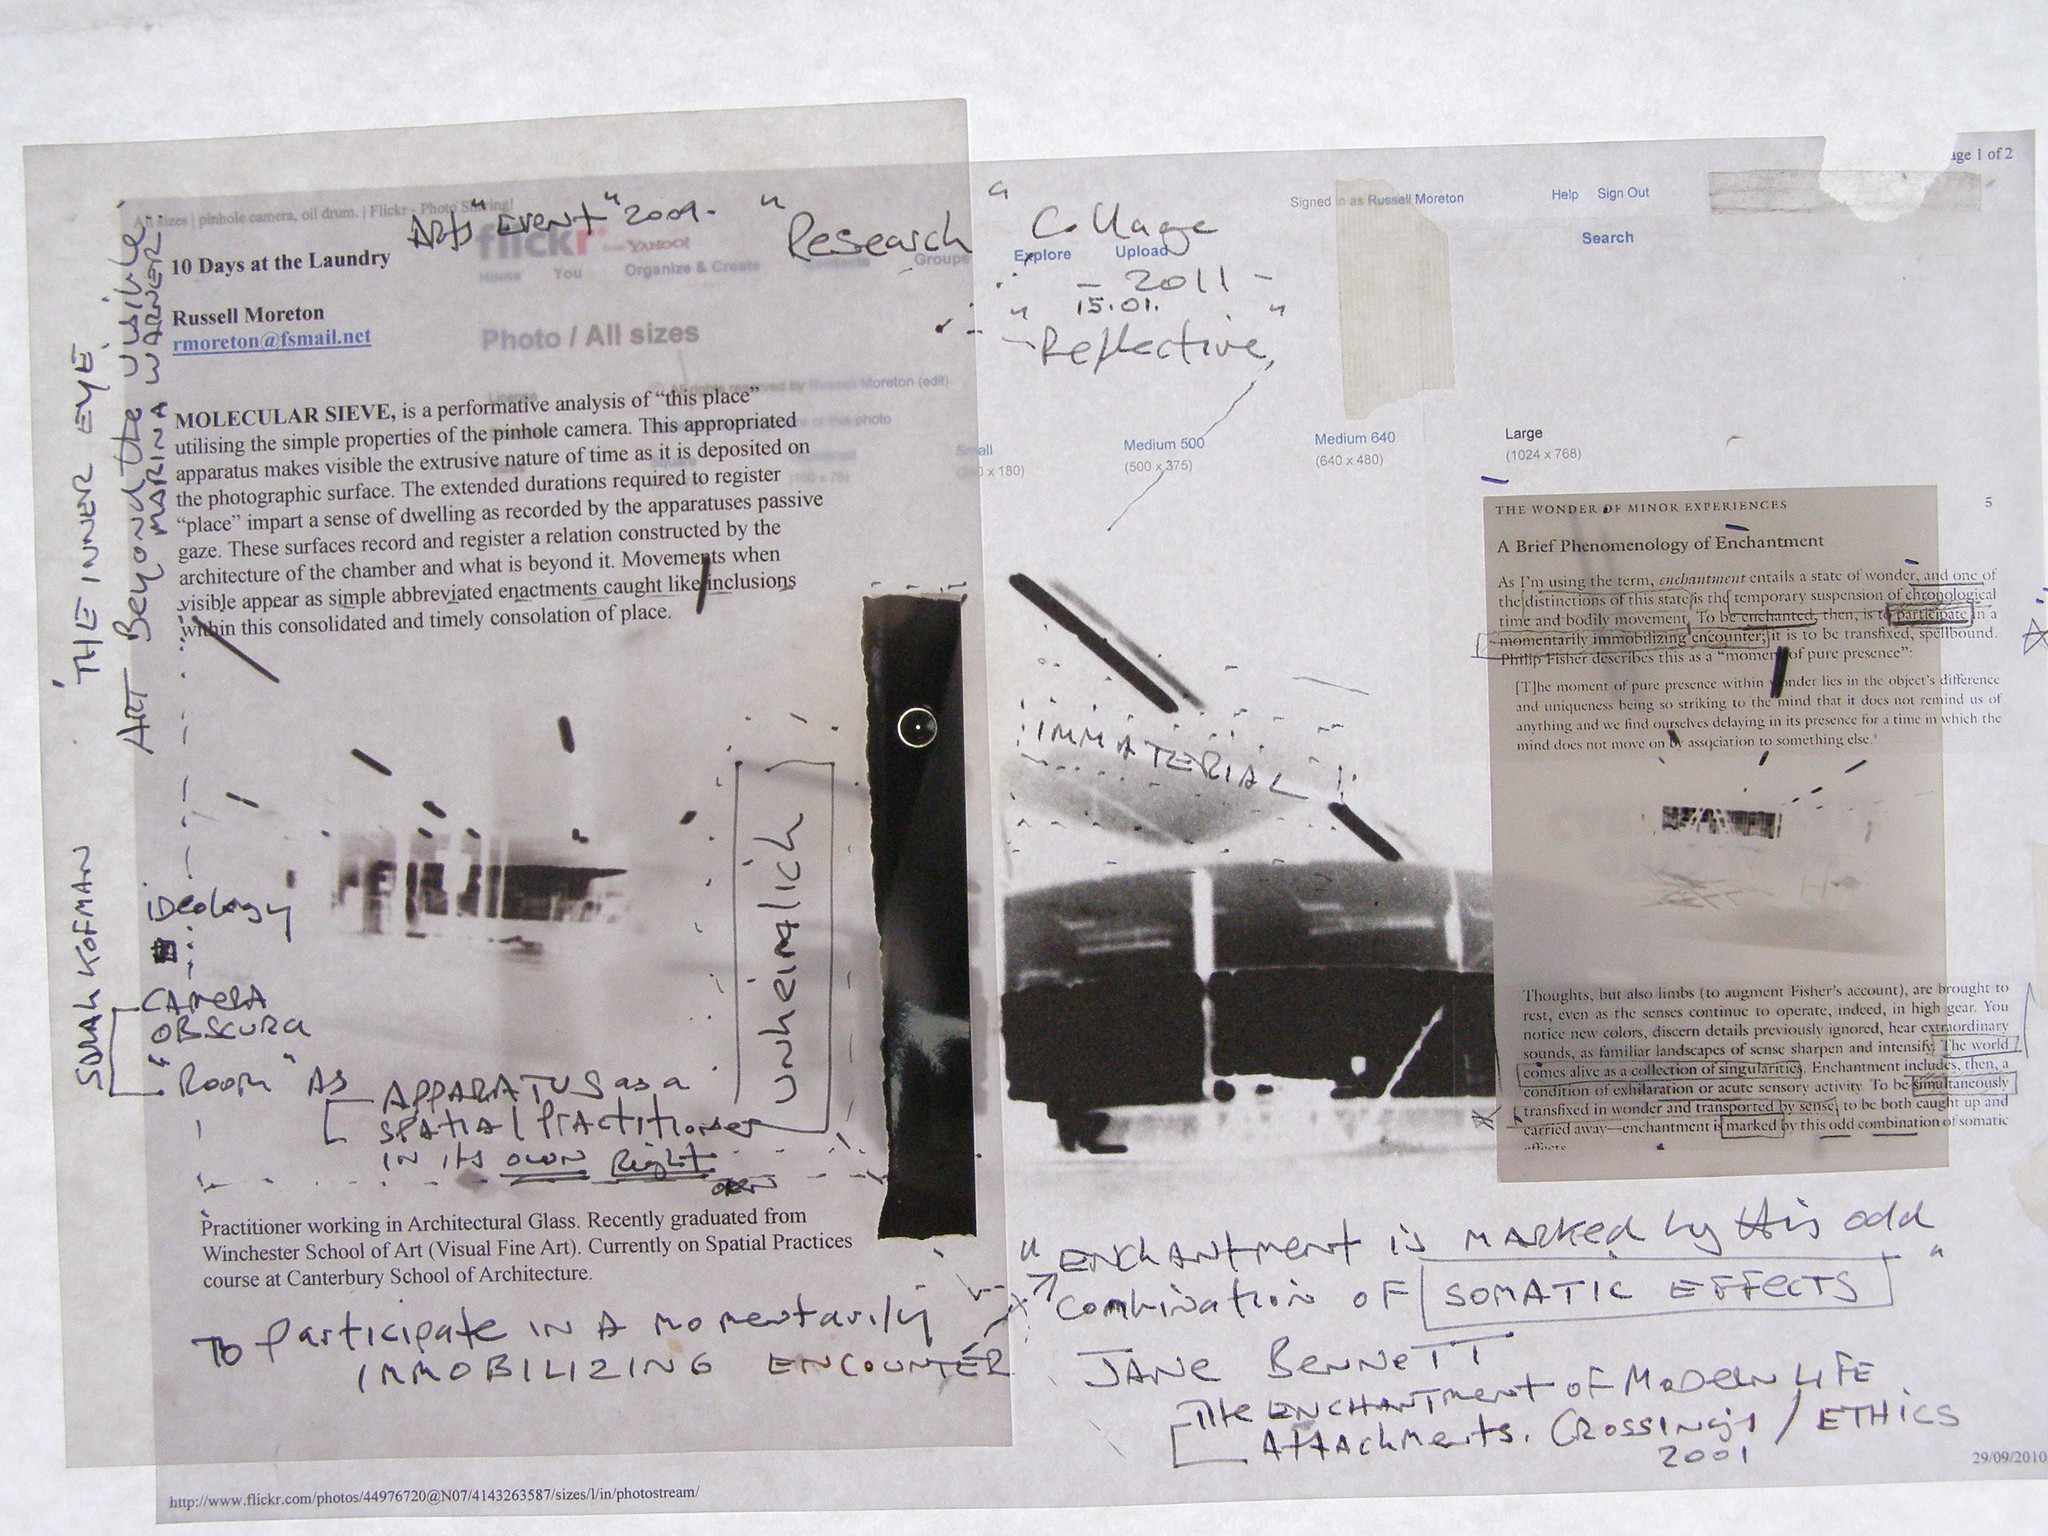 All sizes | pinhole camera, oil drum. | Flickr - Photo Sharing!
age 1 of 2
Arts "Event" 2009. "Research Collage"
flickr from YAHOO!
Home You Organize & Create Contacts Groups Explore Upload
Signed in as Russell Moreton Help Sign Out
Search
- 2011 -
15.01.
"Reflective"
10 Days at the Laundry
Russell Moreton
rmoreton@fsmail.net
Photo / All sizes
All rights reserved by Russell Moreton (edit)
of this photo
Small
x 180)
Medium 500
(500 x 375)
Medium 640
(640 x 480)
Large
(1024 x 768)
MOLECULAR SIEVE, is a performative analysis of “this place”
utilising the simple properties of the pinhole camera. This appropriated
apparatus makes visible the extrusive nature of time as it is deposited on
the photographic surface. The extended durations required to register
“place” impart a sense of dwelling as recorded by the apparatuses passive
gaze. These surfaces record and register a relation constructed by the
architecture of the chamber and what is beyond it. Movements when
visible appear as simple abbreviated enactments caught like inclusions
within this consolidated and timely consolation of place.
'THE INNER EYE'
ART Beyond the visible
MARINA WARNER
SARAH KOFMAN
ideology
CAMERA
OBSCURA
"Room" AS APPARATUS as a
SPATIAL Practitioner
IN its own Right
unheimlich
IMMATERIAL
Practitioner working in Architectural Glass. Recently graduated from
Winchester School of Art (Visual Fine Art). Currently on Spatial Practices
course at Canterbury School of Architecture.
To participate IN A momentarily
IMMOBILIZING ENCOUNTER
THE WONDER OF MINOR EXPERIENCES 5
A Brief Phenomenology of Enchantment
As I’m using the term, enchantment entails a state of wonder, and one of
the distinctions of this state is the temporary suspension of chronological
time and bodily movement. To be enchanted, then, is to participate in a
momentarily immobilizing encounter; it is to be transfixed, spellbound.
Philip Fisher describes this as a “moment of pure presence”:
[T]he moment of pure presence within wonder lies in the object’s difference
and uniqueness being so striking to the mind that it does not remind us of
anything and we find ourselves delaying in its presence for a time in which the
mind does not move on by association to something else.
Thoughts, but also limbs (to augment Fisher’s account), are brought to
rest, even as the senses continue to operate, indeed, in high gear. You
notice new colors, discern details previously ignored, hear extraordinary
sounds, as familiar landscapes of sense sharpen and intensify. The world
comes alive as a collection of singularities. Enchantment includes, then, a
condition of exhilaration or acute sensory activity. To be simultaneously
transfixed in wonder and transported by sense, to be both caught up and
carried away—enchantment is marked by this odd combination of somatic
effects
"ENCHANTMENT is MARKED by this odd
combination OF SOMATIC EFFECTS"
JANE BENNETT
The ENCHANTMENT OF MODERN LIFE
Attachments, CROSSINGS / ETHICS
2001
http://www.flickr.com/photos/44976720@N07/4143263587/sizes/l/in/photostream/
29/09/2010